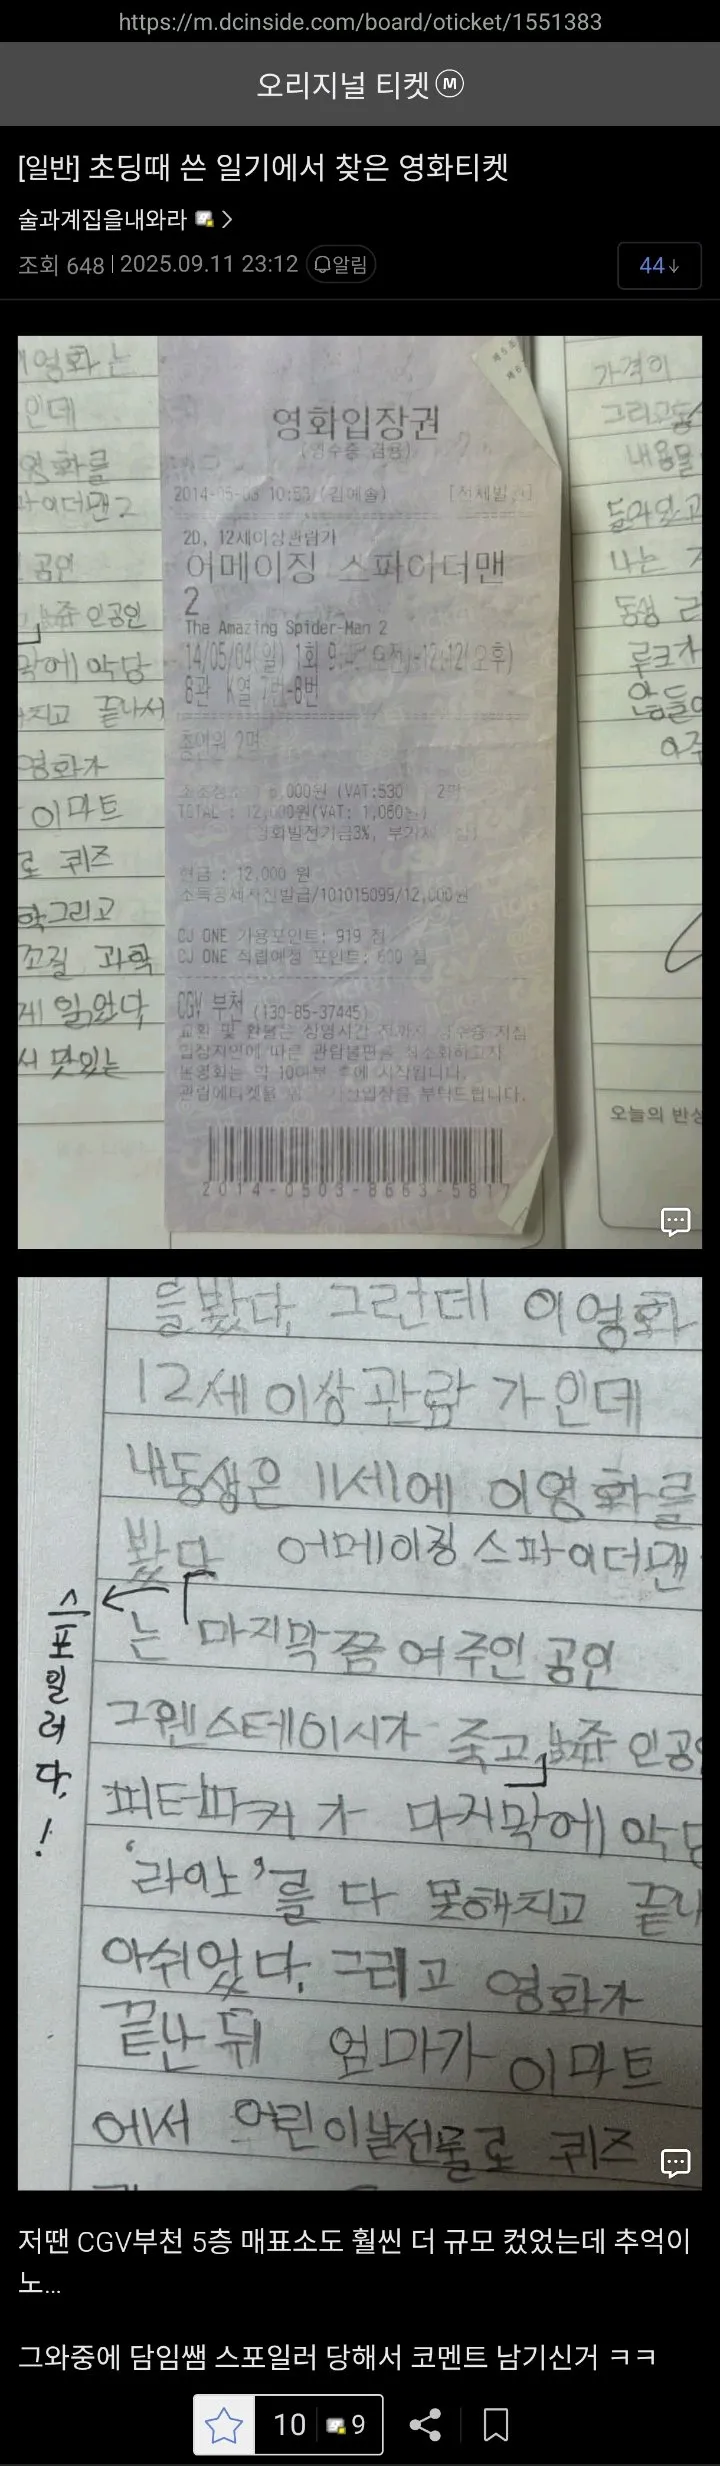 https://m.dcinside.com/board/oticket/1551383
오리지널 티켓 M
[일반] 초딩때 쓴 일기에서 찾은 영화티켓
술과계집을내와라
조회 648 2025.09.11 23:12 알림
44
영화는
인데
영화를
파이더맨2
공인
쥬인공인
막에 악당
지고 끝나서
영화가
이마트
로 퀴즈
학그리고
조질 과학
게 읽었다
서 맛있는
영화입장권
(영수증 겸용)
2014-05-03 10:53 (김예솔) [전체발권]
2D, 12세이상관람가
어메이징 스파이더맨
2
The Amazing Spider-Man 2
14/05/04(일) 1회
8관 K열
총인원 2명
TOTAL : 12,000원(VAT: 1,060원)
현금 : 12,000 원
소득공제자진발급/101015099/12,000원
CJ ONE 가용포인트: 919 점
CJ ONE 적립예정 포인트: 600 점
CGV 부천 (130-85-37445)
교환 및 환불은 상영시간 전까지 영수증 지참
입장지연에 따른 관람불편을 최소화하고자
본영화는 약 10여분 후에 시작됩니다.
2014-0503-8663-5817
가격이
그리고
내용물
들어있고
나는
동생
루크가
아주
오늘의 반성
를봤다, 그런데 이영화
12세이상관람 가인데
내동생은 11세에 이영화를
봤다 어메이징 스파이더맨
는 마지막쯤 여주인 공인
그웬스테이시가 죽고, 쥬인공
피터파커가 마지막에 악당
'라이노'를 다 못해치고 끝나
아쉬웠다, 그리고 영화가
끝난뒤 엄마가 이마트
에서 어린이날선물로 퀴즈
스포일러다,!
저땐 CGV부천 5층 매표소도 훨씬 더 규모 컸었는데 추억이
노...
그와중에 담임쌤 스포일러 당해서 코멘트 남기신거 ㅋㅋ
10 9